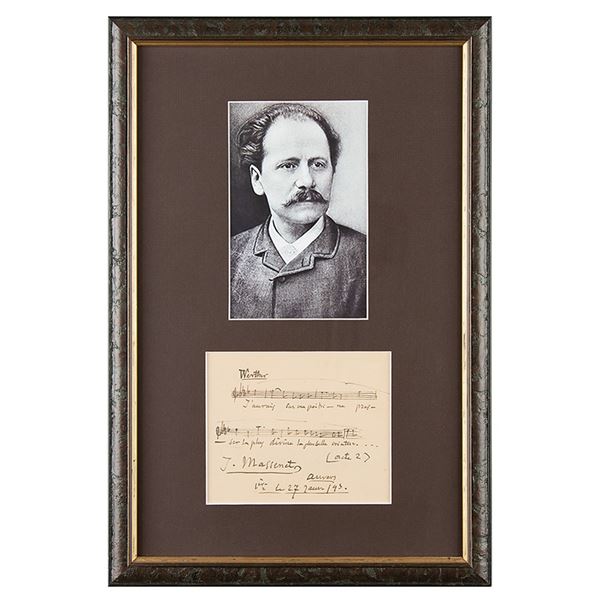 Werther
J'aurais sur ma poitri — ne pres —
— ser la plus divine la plus belle créature. . . .
(acte 2)
J. Massenet
Anvers
le 27 Janv/93.